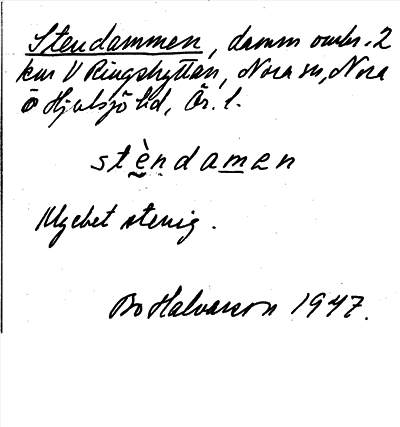 Stendammen, damm omkr. 2
km V Ringshyttan, Nora sn, Nora
o Hjulsjö bd, Ör. l.
stèndamen
Mycket stenig.
Bo Halvarson 1947.